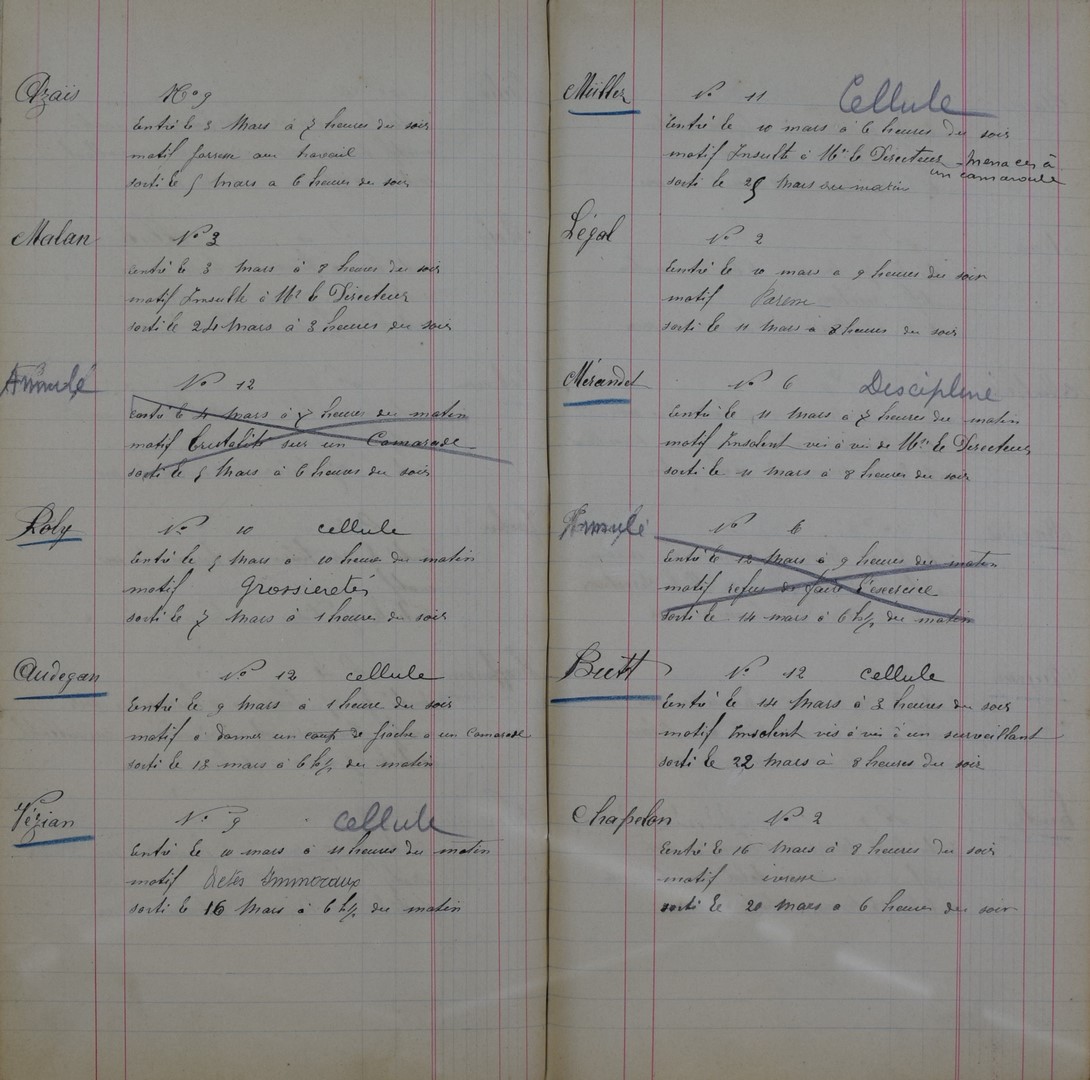 Azaïs No 9
Entré le 3 Mars à 7 heures du soir
motif paresse au travail
sorti le 5 Mars a 6 heures du soir
Malan No 3
Entré le 3 Mars à 8 heures du soir
motif Insulte à Mr le Directeur
sorti le 24 Mars à 3 heures du soir
Annulé No 12
Entré le 4 Mars à 7 heures du matin
motif brutalité sur un Camarade
sorti le 5 Mars à 6 heures du soir
Roly No 10 cellule
Entré le 5 Mars à 10 heures du matin
motif Grossieretés
sorti le 7 Mars à 1 heures du soir
Audegan No 12 cellule
Entré le 9 Mars à 1 heure du soir
motif a donner un coup de pioche a un Camarade
sorti le 18 mars à 6 h ½ du matin
Vézian No 9 cellule
Entré le 10 mars à 11 heures du matin
motif Actes Immoraux
sorti le 16 Mars à 6 h ½ du matin
Müller No 11 Cellule
Entré le 10 mars à 6 heures du soir
motif Insulte à Mr le Directeur - menaces à
un camarade
sorti le 25 Mars au matin
Légal No 2
Entré le 10 mars a 9 heures du soir
motif Paresse
sorti le 11 Mars à 8 heures du soir
Mérandet No 6 Descipline
Entré le 11 Mars a 7 heures du matin
motif Insolent vis à vis de Mr le Directeur
sorti le 11 Mars à 8 heures du soir
Annulé No 6
Entré le 12 Mars à 9 heures du matin
motif refus de faire l'exercice
sorti le 14 mars à 6 h ½ du matin
No 12 cellule
Entré le 14 Mars à 3 heures du soir
motif Insolent vis à vis d'un surveillant
sorti le 22 Mars à 8 heures du soir
Chapelan No 2
Entré le 16 Mars à 8 heures du soir
motif ivresse
sorti le 20 Mars a 6 heures du soir